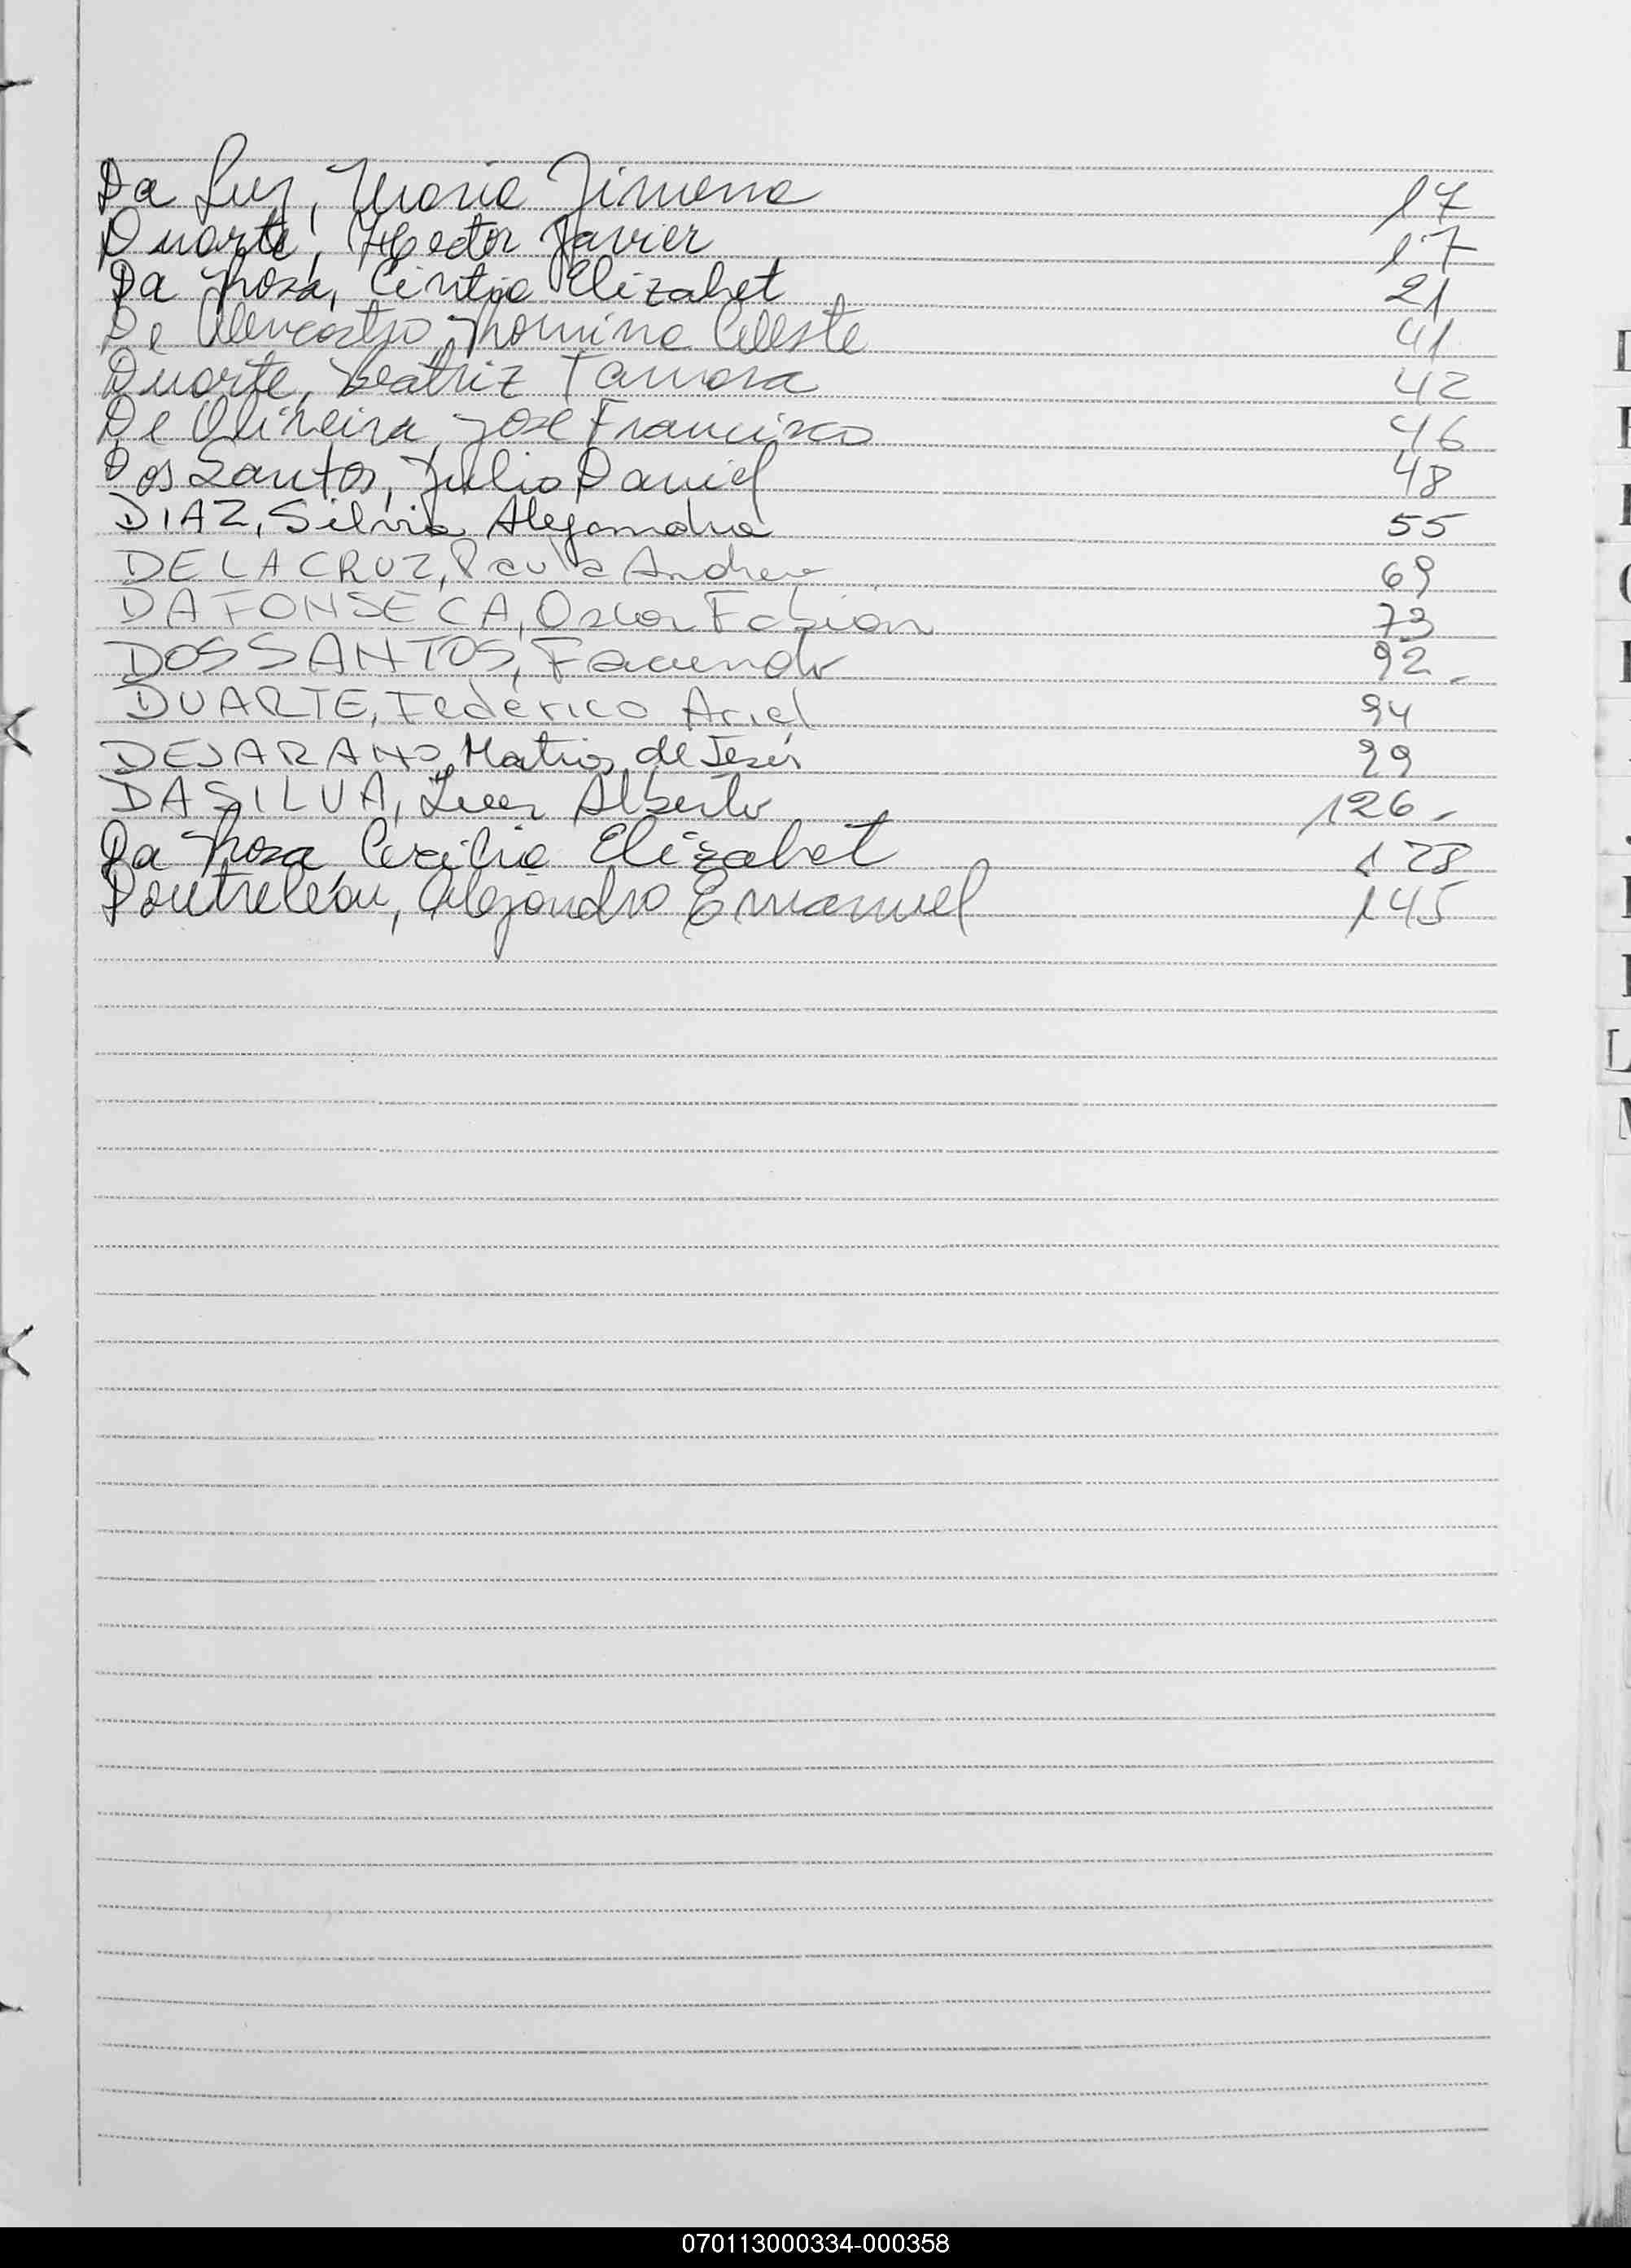 Da Luz, Maria Jimena 17
Duarte, Hector Javier 17
Da Rosa, Cintia Elizabet 21
De Alencastro, Romina Celeste 41
Duarte, Beatriz Tamara 42
De Oliveira, Jose Francisco 46
Dos Santos, Julio Daniel 48
DIAZ, Silvia Alejandra 55
DE LA CRUZ, Paula Andrea 69
DA FONSECA, Oscar Fabian 73
DOS SANTOS, Facundo 92
DUARTE, Federico Ariel 94
DEJARANO, Matias de Jesús 99
DA SILVA, Lucas Alberto 126
Da Rosa Cecilia Elizabet 128
Doutreleau, Alejandro Emanuel 145
070113000334-000358